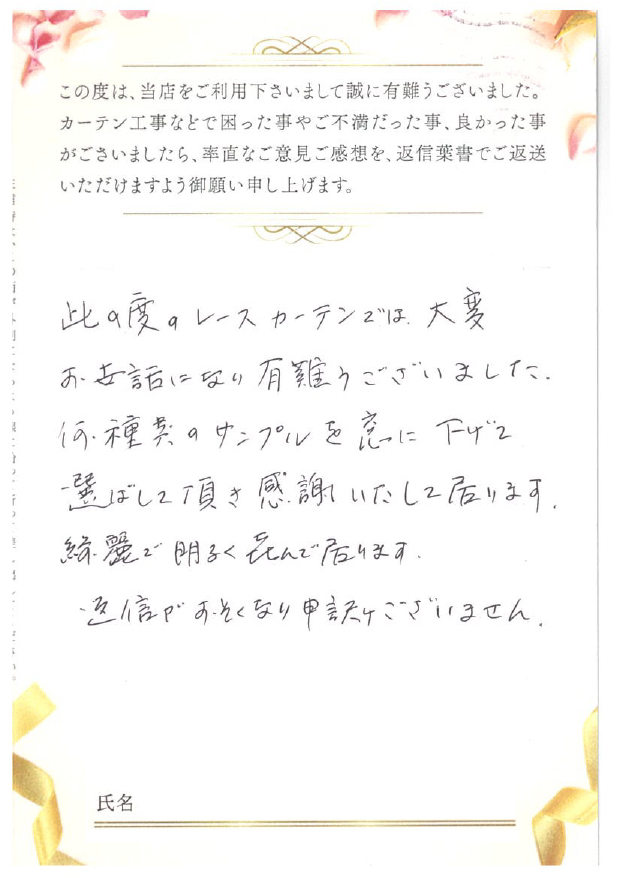 この度は、当店をご利用下さいまして誠に有難うございました。
カーテン工事などで困った事やご不満だった事、良かった事
がございましたら、率直なご意見ご感想を、返信葉書でご返送
いただけますよう御願い申し上げます。
此の度のレースカーテンでは、大変
お世話になり有難うございました.
何種類のサンプルを窓に下げて
選ばして頂き感謝いたして居ります.
綺麗で明るく喜んで居ります.
返信がおそくなり申訳ございません.
氏名